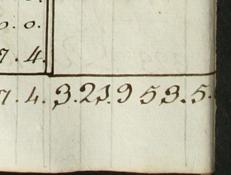 0.0.
7.4.
7.4.3.21.953.5.